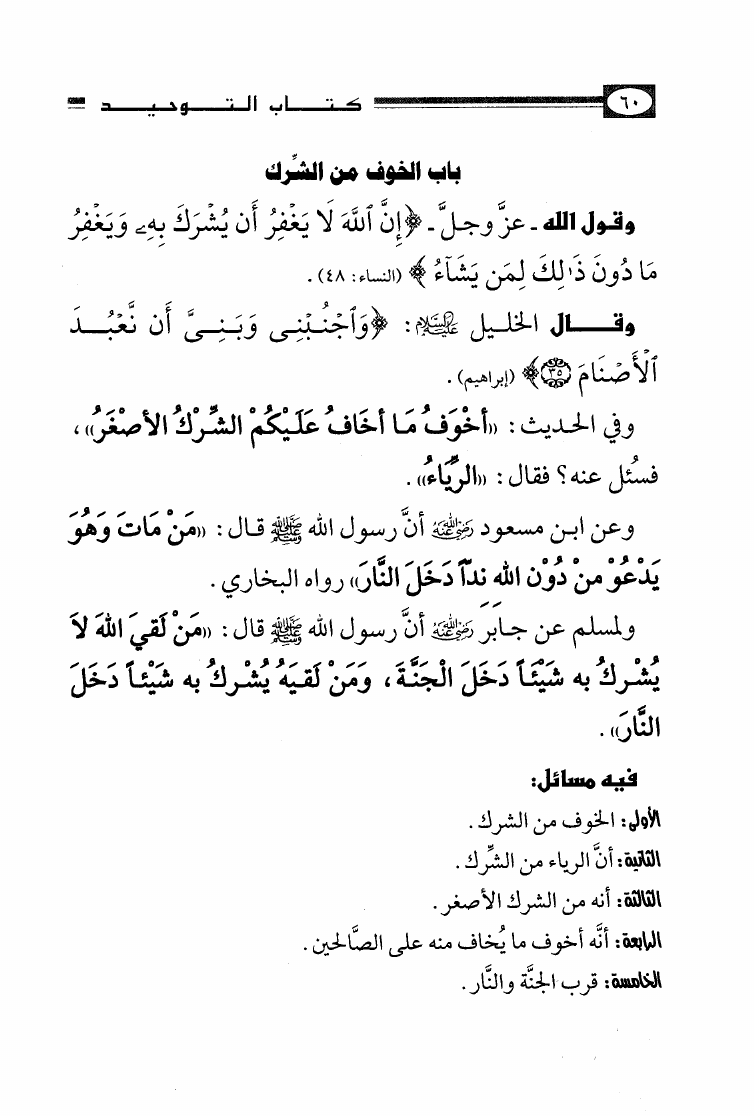 ٦٠ كتاب التوحيد
باب الخوف من الشِّرك
وقول الله ـ عزَّ وجلَّ ـ ﴿إِنَّ ٱللَّهَ لَا يَغْفِرُ أَن يُشْرَكَ بِهِۦ وَيَغْفِرُ
مَا دُونَ ذَٰلِكَ لِمَن يَشَآءُ﴾ (النساء: ٤٨) .
وقـال الخليل عليه السلام: ﴿وَٱجْنُبْنِى وَبَنِىَّ أَن نَّعْبُدَ
ٱلْأَصْنَامَ ٣٥﴾ (إبراهيم) .
وفي الحديث: «أَخْوَفُ مَا أَخَافُ عَلَيْكُمْ الشِّرْكُ الأَصْغَرُ» ،
فسُئل عنه؟ فقال: «الرِّيَاءُ» .
وعن ابن مسعود رضي الله عنه أنَّ رسول الله ﷺ قال: «مَنْ مَاتَ وَهُوَ
يَدْعُوْ مِنْ دُوْنِ اللهِ نِدّاً دَخَلَ النَّارَ» رواه البخاري .
ولمسلم عن جابر رضي الله عنه أنَّ رسول الله ﷺ قال: «مَنْ لَقِيَ اللهَ لاَ
يُشْرِكُ بِهِ شَيْئاً دَخَلَ الْجَنَّةَ، وَمَنْ لَقِيَهُ يُشْرِكُ بِهِ شَيْئاً دَخَلَ
النَّارَ» .
فيه مسائل:
الأولى: الخوف من الشرك .
الثانية: أنَّ الرياء من الشِّرك .
الثالثة: أنه من الشرك الأصغر .
الرابعة: أنَّه أخوف ما يُخاف منه على الصَّالحين .
الخامسة: قرب الجنَّة والنَّار .